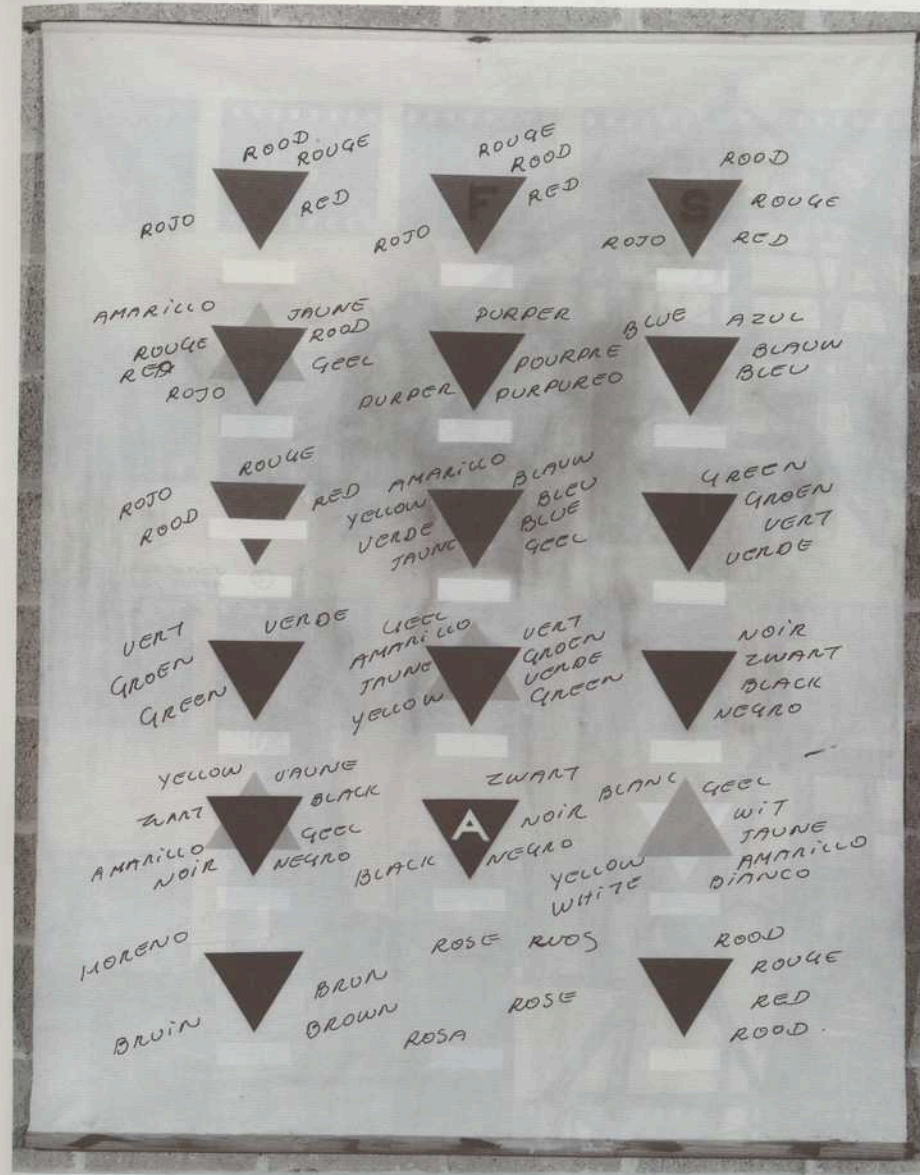 ROOD
ROUGE
ROJO
RED
ROUGE
ROOD
RED
ROJO
F
ROOD
ROUGE
ROJO
RED
S
AMARILLO
JAUNE
ROUGE
ROOD
RED
GEEL
ROJO
PURPER
POURPRE
PURPER
PURPUREO
BLUE
AZUL
BLAUW
BLEU
ROUGE
ROJO
RED
ROOD
AMARILLO
BLAUW
YELLOW
BLEU
VERDE
BLUE
JAUNE
GEEL
GREEN
GROEN
VERT
VERDE
VERT
VERDE
GROEN
GREEN
GEEL
VERT
AMARILLO
GROEN
JAUNE
VERDE
YELLOW
GREEN
NOIR
ZWART
BLACK
NEGRO
YELLOW
JAUNE
ZWART
BLACK
AMARILLO
GEEL
NOIR
NEGRO
ZWART
NOIR
BLACK
NEGRO
A
BLANC
GEEL
WIT
JAUNE
YELLOW
AMARILLO
WHITE
BIANCO
MORENO
BRUN
BRUIN
BROWN
ROSE
ROSE
ROSA
ROOD
ROUGE
RED
ROOD.